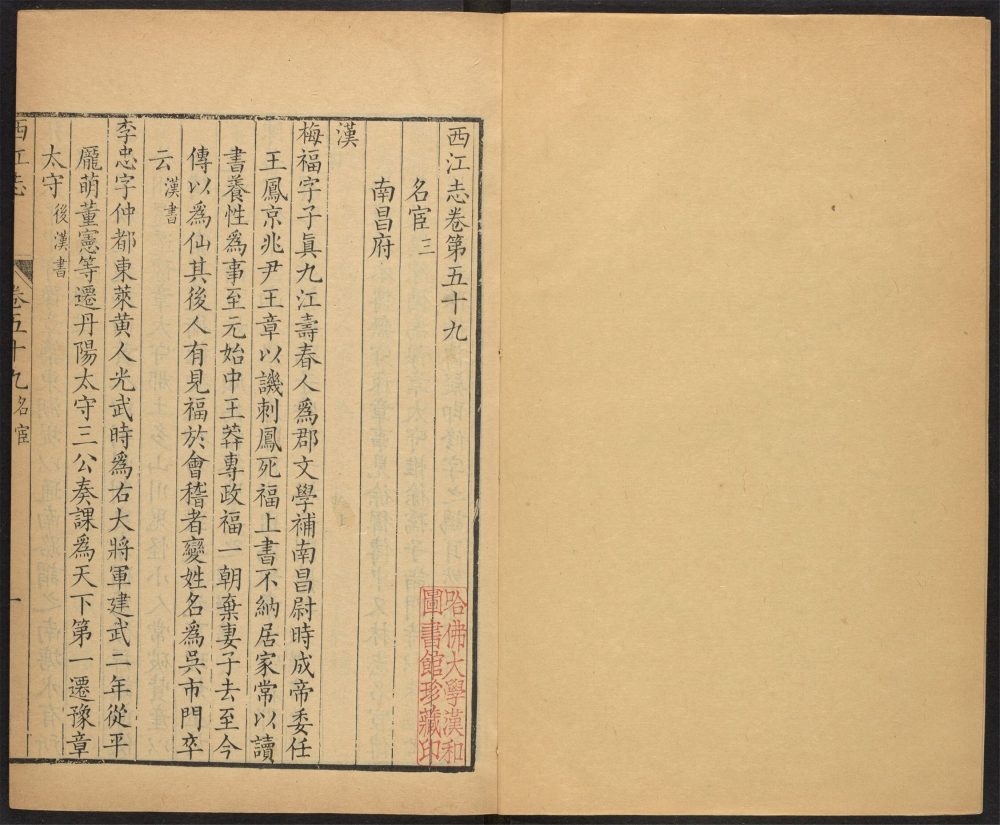 西江志卷第五十九
名宦三
南昌府
漢
梅福字子眞九江壽春人爲郡文學補南昌尉時成帝委任
王鳳京兆尹王章以譏刺鳳死福上書不納居家常以讀
書養性爲事至元始中王莽專政福一朝棄妻子去至今
傳以爲仙其後人有見福於會稽者變姓名爲吳市門卒
云漢書
李忠字仲都東萊黃人光武時爲右大將軍建武二年從平
龎萌董憲等遷丹陽太守三公奏課爲天下第一遷豫章
太守後漢書
西江志 卷五十九名宦 一
哈佛大學漢和
圖書館珍藏印